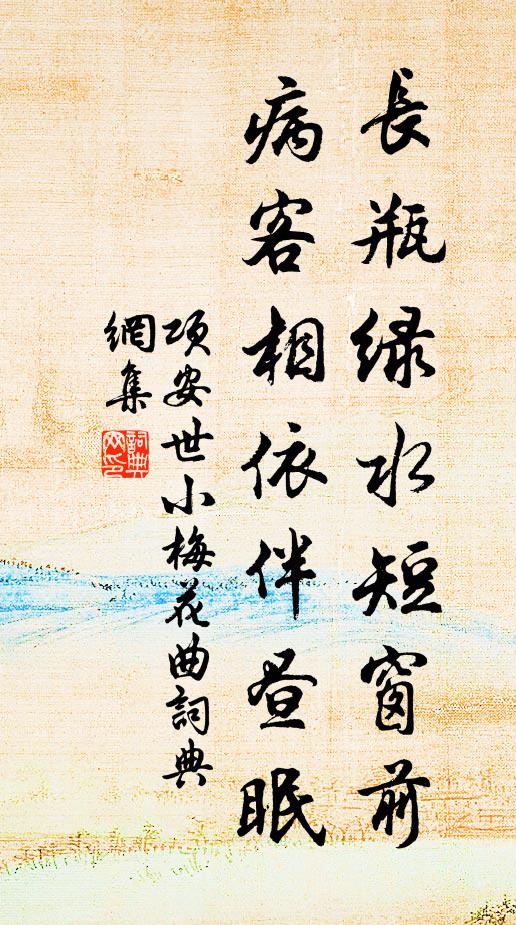 長瓶绿水短窗前
病客相依伴昼眠
项安世小梅花曲詞典
網集
詞典
网印